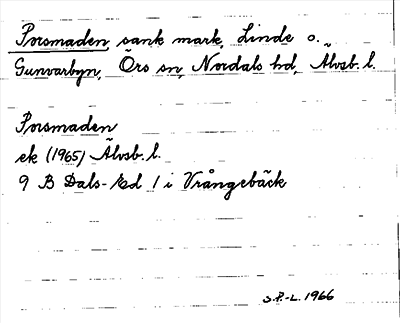 Porsmaden, sank mark, Linde o.
Gunvarbyn, Örs sn, Nordals hd, Älvsb. l.
Porsmaden
ek (1965) Älvsb. l.
9 B Dals-Ed 1 i Vrångebäck
S.P.-L. 1966